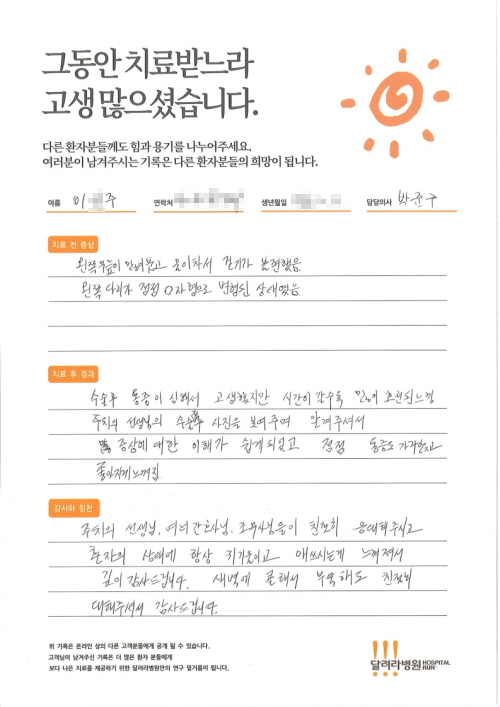 그동안 치료받느라
고생 많으셨습니다.
다른 환자분들께도 힘과 용기를 나누어주세요.
여러분이 남겨주시는 기록은 다른 환자분들의 희망이 됩니다.
이름 이 주 연락처 생년월일 담당의사 박준구
치료 전 증상
왼쪽무릎이 안펴졌고 물이차서 걷기가 불편했음
왼쪽 다리가 점점 O자형으로 변형된 상태였음
치료 후 경과
수술후 통증이 심해서 고생했지만 시간이 갈수록 많이 호전된느낌
주치의 선생님이 수술후 사진을 보여주며 알려주셔서
증상에 대한 이해가 쉽게되었고 점점 통증도 가라앉고
좋아지게느껴짐
감사와 칭찬
주치의 선생님, 여러간호사님, 조무사님들이 친절히 응대해주시고
환자의 상태에 항상 귀기울이고 애쓰시는게 느껴져서
깊이 감사드립니다. 새벽에 콜해서 부탁해도 친절히
대해주셔서 감사드립니다.
위 기록은 온라인 상의 다른 고객분들에게 공개 될 수 있습니다.
고객님이 남겨주신 기록은 더 많은 환자 분들에게
보다 나은 치료를 제공하기 위한 달려라병원만의 연구 밑거름이 됩니다.
달려라병원 HOSPITAL RUN